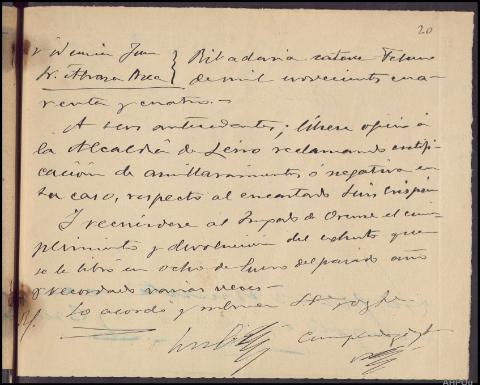 20
Ribadavia catorce Febrero
de mil novecientos cua-
renta y cuatro.-
A sus antecedentes; líbrese oficio á
la Alcaldía de Leiro reclamando certifi-
cación de amillaramientos ó negativa en
su caso, respecto al encartado Luis Crespo
Y recuérdese al Juzgado de Orense el cum-
plimiento y devolucion del exhorto que
se le libró en ocho de Enero del pasado año
y recordado varias veces-
Lo acordó y rubrica S. Sª doy fe.
AHPOu